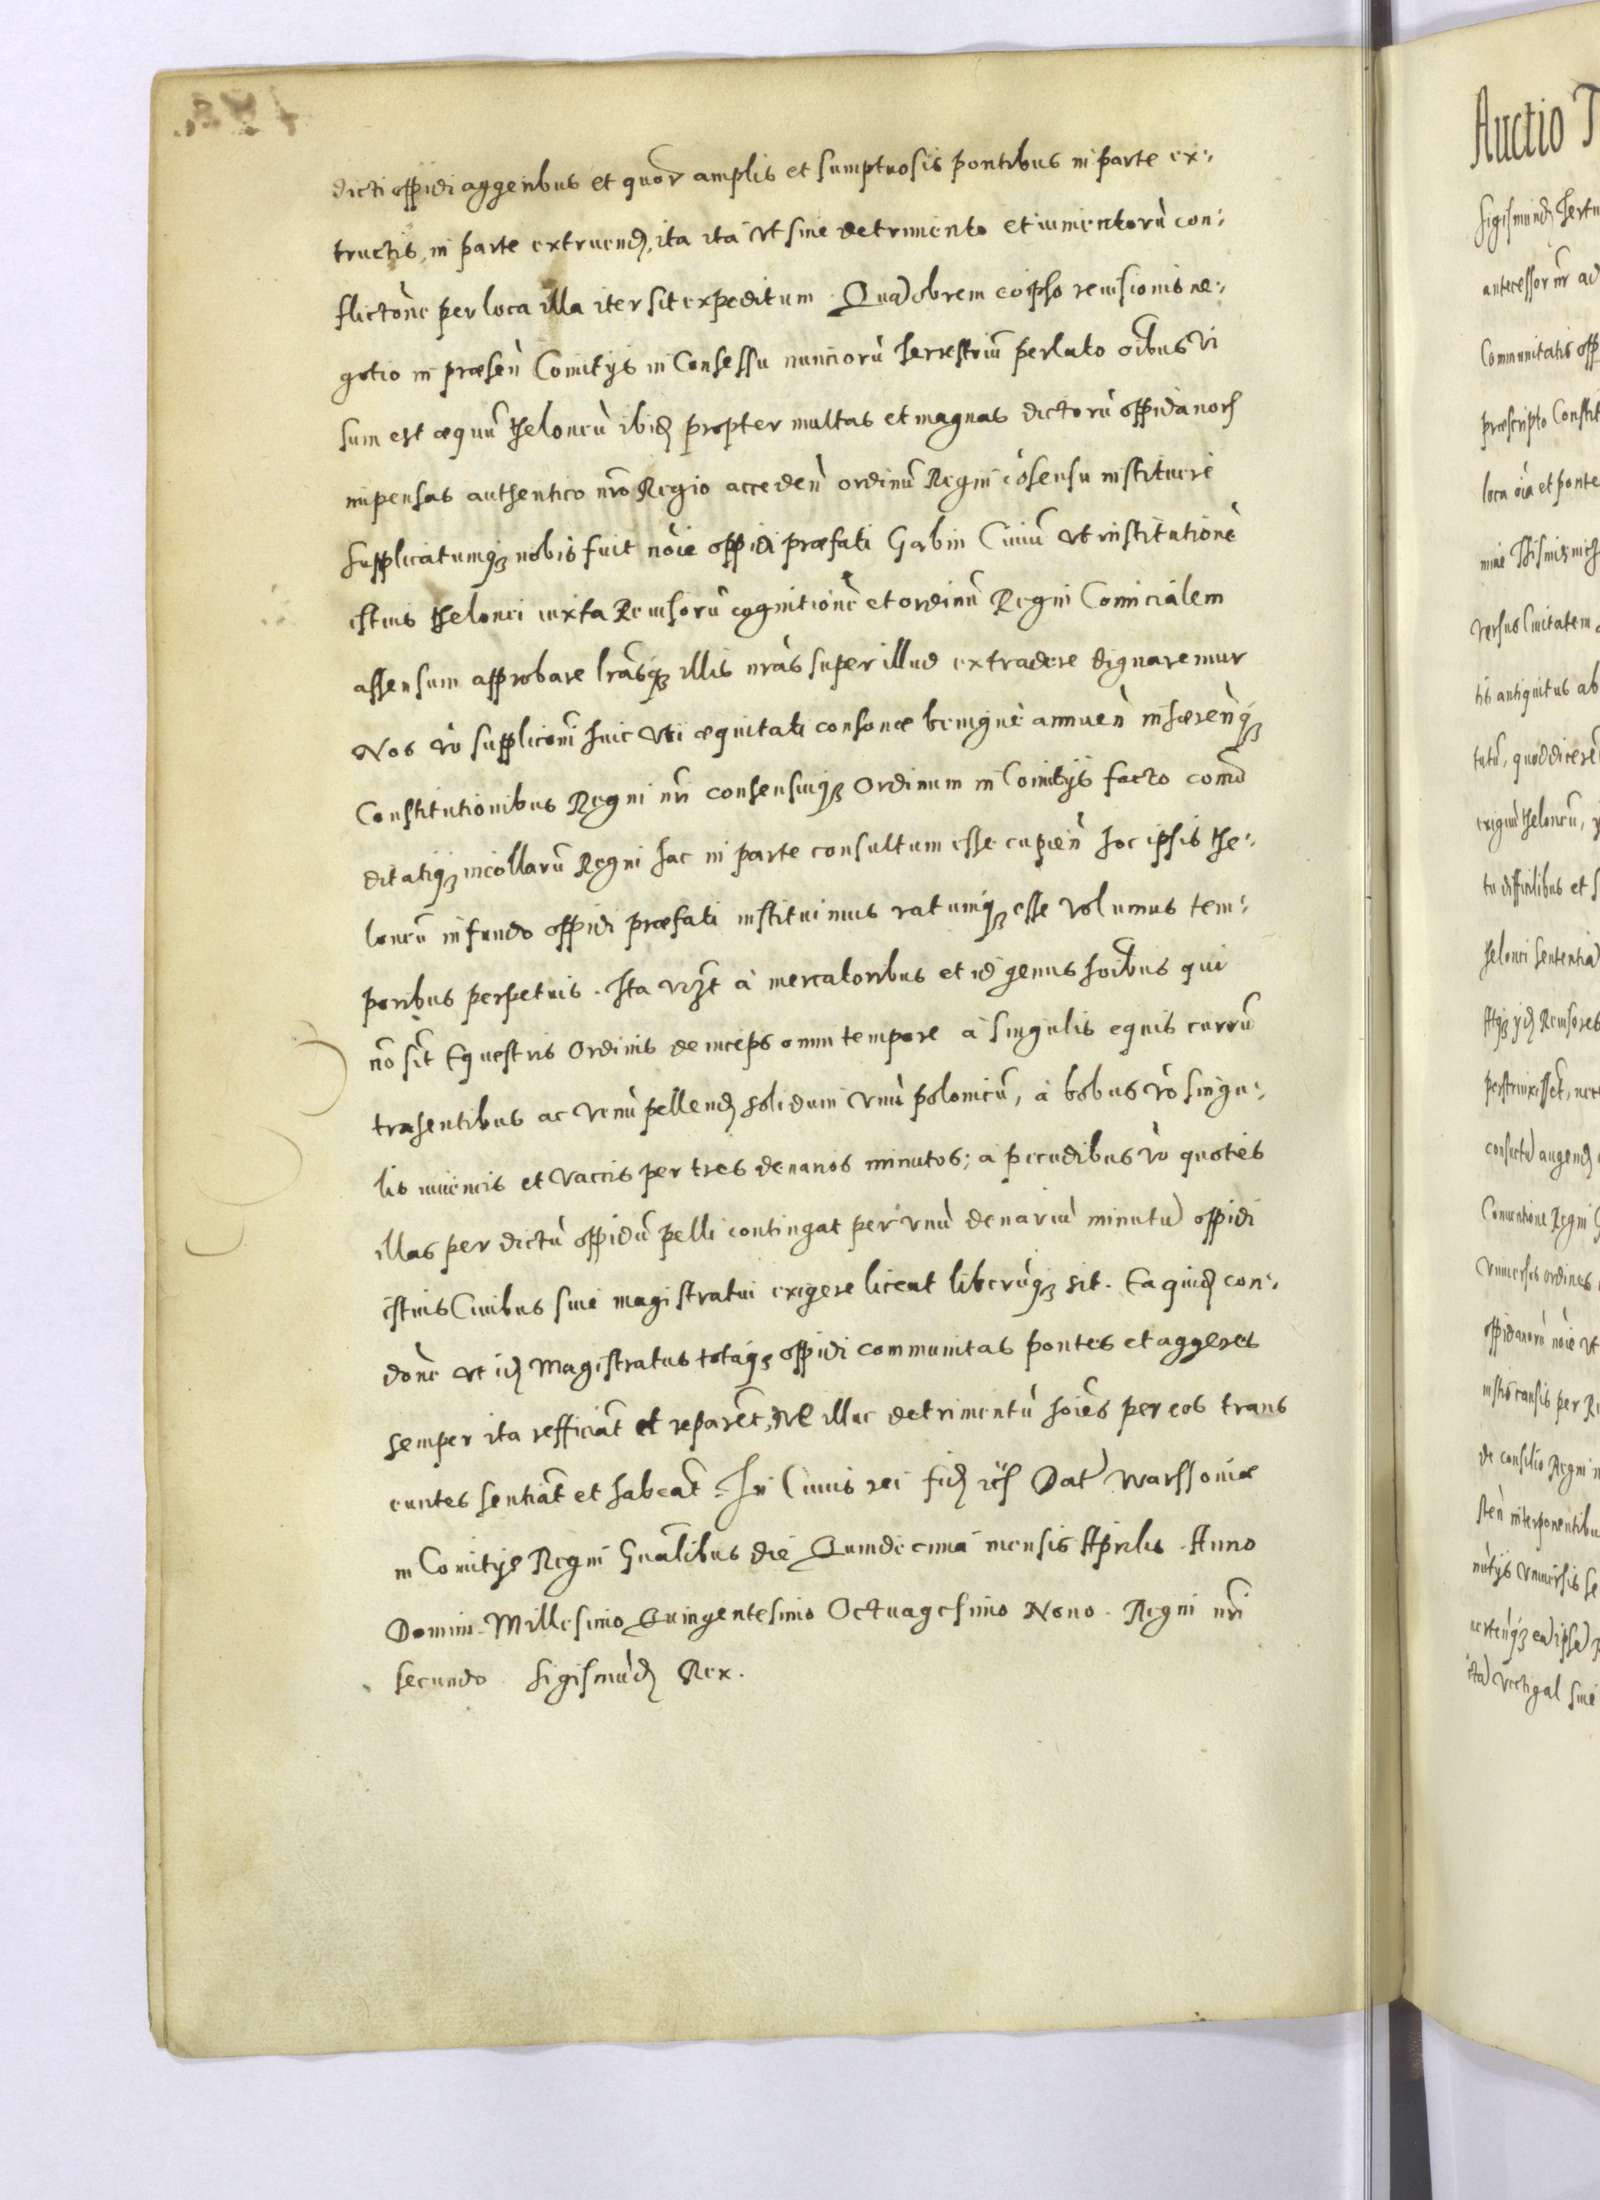 dicti oppidi aggeribus et quor̄ amplis et sumptuosis pontibus in parte ex:
tructis, in parte extruend, ita ita vt sine detrimento et iumentorũ con:
flictone per loca illa iter sit expeditum. Quãobrem eoipso reuisionis ne:
gotio in præseñ Comitijs in Consessu nunciorũ terrestriũ perlato oĩbus vi
sum est æquũ theloneũ ibid propter multas et magnas dictorũ oppidanor
impensas authentico nr̃o Regio acceden̄ ordinũ Regni cõsensu instituere
supplicatumq nobis fuit noĩe oppidi præfati Gąbin Ciuiũ vt institutionẽ
istius thelonei iuxta Reuisorũ cognitionẽ et ordinũ Regni Comicialem
assensum approbare lr̃asq illis nr̃as super illud extradere dignaremur
Nos v̄o supplicõni huic vti æquitati consonæ benigne annueñ inhæreñq
Constitutionibus Regni nr̃i consensuiq Ordinum in Comitijs facto comõ
ditatiq incollarũ Regni hac in parte consultum esse cupieñ hoc ipsis the:
loneũ in fundo oppidi præfati instituimus ratumq esse volumus tem:
poribus perpetuis. Ita vizt à mercatoribus et id genus hoĩbus qui
nõ sĩt Equestris Ordinis deinceps omni tempore à singulis equis currũ
trahentibus ac venũ pellend solidum vnũ polonicũ, à bobus v̄o singu:
lis iuuencis et vaccis per tres denarios minutos; à pecudibus v̄o quoties
illas per dictũ oppidũ pelli contingat per vnũ denariũ minutũ oppidi
istius Ciuibus siue magistratui exigere liceat liberũq sit. Ea quid con:
done vt id Magistratus totaq oppidi communitas pontes et aggeres
semper ita refficiãt et reparẽt, ne illuc detrimentũ hoĩes per eos trans
euntes sentiãt et habeãt. In Cuius rei fid Dat Warssouiæ
in Comitijs Regni Gnãlibus die Quindecima mensis Aprilis. Anno
Domini. Millesimo Quingentesimo Octuagesimo Nono. Regni nr̃i
secundo Sigismũd Rex.
Auctio T
antecessor nr̃ ad
Communitatis opp
præscripto Constit
loca oĩa et ponte
versus Ciuitatem
tis antiquitus ab
tatũ, quod dicere
exiguũ theloneũ,
tu difficilibus et s
thelonei sententiã
Atq yd Reuisores
consuetũ augend
Conuentione Regni
Vniuersis ordines
oppidanorũ noĩe vt
iustis causis per Re
de consilio Regni n
sten̄ interponentibu
nũtijs vniuersis se
uerteñq eã ipsã
itã vectigal siue